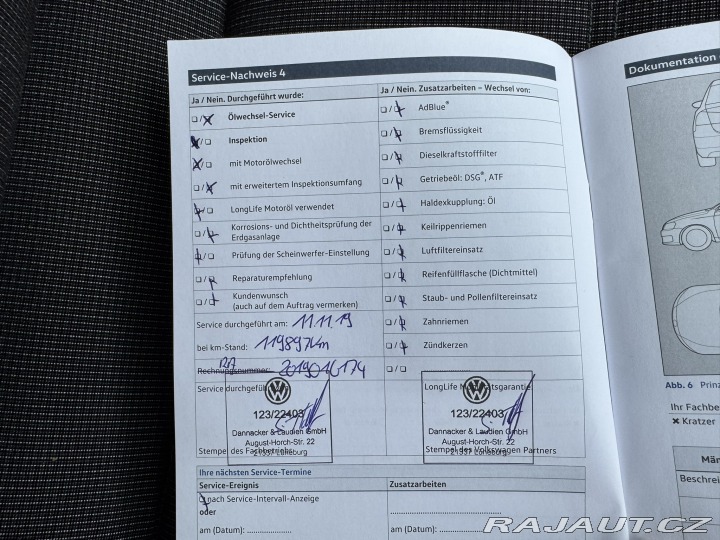 Service-Nachweis 4
Dokumentation
Ja / Nein. Durchgeführt wurde:
Ja / Nein. Zusatzarbeiten – Wechsel von:
Ölwechsel-Service
AdBlue®
Inspektion
Bremsflüssigkeit
mit Motorölwechsel
Dieselkraftstofffilter
mit erweitertem Inspektionsumfang
Getriebeöl: DSG®, ATF
LongLife Motoröl verwendet
Haldexkupplung: Öl
Korrosions- und Dichtheitsprüfung der
Erdgasanlage
Keilrippenriemen
Prüfung der Scheinwerfer-Einstellung
Luftfiltereinsatz
Reparaturempfehlung
Reifenfüllflasche (Dichtmittel)
Kundenwunsch
(auch auf dem Auftrag vermerken)
Staub- und Pollenfiltereinsatz
Service durchgeführt am: 11.11.19
Zahnriemen
bei km-Stand: 119897km
Zündkerzen
RA
Rechnungsnummer: 2019046174
Service durchgeführt
LongLife
123/22403
123/22403
Dannacker & Laudien GmbH
Dannacker & Laudien GmbH
August-Horch-Str. 22
August-Horch-Str. 22
21337 Lüneburg
21337 Lüneburg
Stempel des Volkswagen Partners
Ihre nächsten Service-Termine
Service-Ereignis
Zusatzarbeiten
nach Service-Intervall-Anzeige
oder
am (Datum):
am (Datum):
Abb. 6 Prinz
Ihr Fachbe
× Kratzer
Män
Beschrei
RAJAUT.CZ